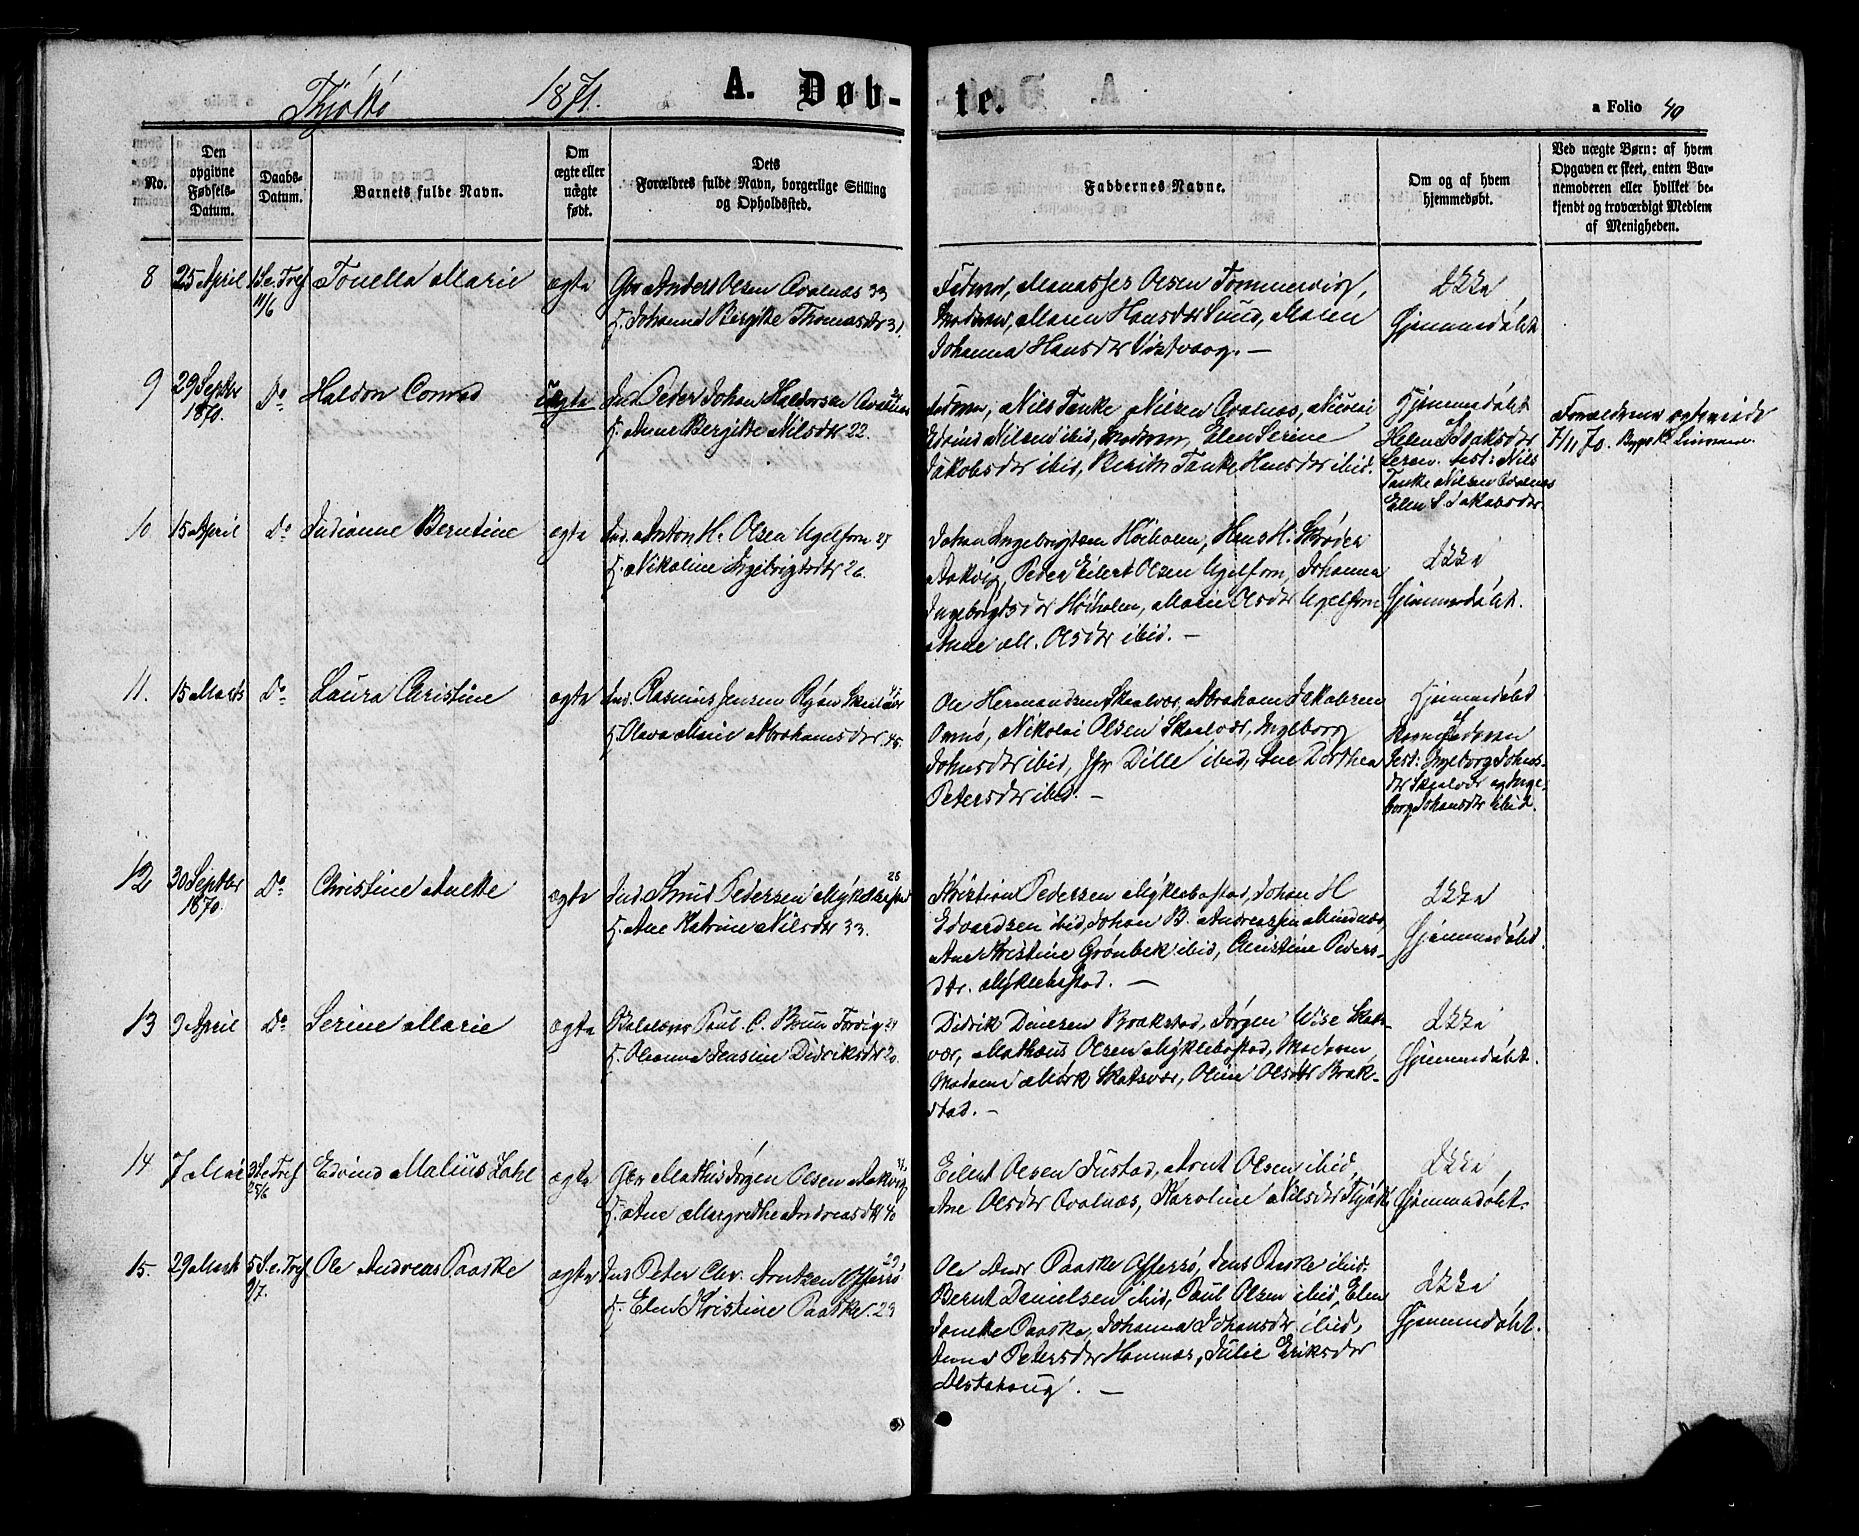 Thjøttø 1871. A. Døb-te. a Folio 40
No.
Den opgivne Fødsels-Datum.
Daabs-Datum.
Barnets fulde Navn.
Om ægte eller uægte født.
Dets Forældres fulde Navn, borgerlige Stilling og Opholdssted.
Faddernes Navne.
Om og af hvem hjemmedøbt.
Ved uægte Børn: af hvem Opgaven er skeet, enten Barnemoderen eller hvilket bekjendt og troværdigt Medlem af Menigheden.
8 25 April 1 S. e. Tref 11/6 Tonella Marie ægte
Anders Olsen Qvalnæs 33
K. Johanna Bergitte Thomasdtr 31.
Fadren, Manasses Olsen Tommervig,
Modren, Maren Hansdtr Sund, Maren
Johanna Hansdtr Vistvaag. —
Ikke
Hjemmedøbt
9 29 Septbr 1870. Do Haldon Conrad Uægte
Ind. Peder Johan Haldorsen Qvalnæs
K. Anne Bergitte Nilsdtr 22.
Fadren, Nils Tanke Nilsen Qvalnæs, Nicolai
Edvind Nilsen ibid, Modren, Elen Serine
Jakobsdtr ibid, Berith Tanke Hansdtr ibid.
Hjemmedøbt
af
Helen Isaksdtr
test: Nils
Tanke Nilsen Qvalnæs
Elen S. Jakobsdtr.
Forældrene
7/11 70.
10 15 April Do Julianne Berntine ægte
Ind. Anton H. Olsen Ugelfom 27
K. Nikoline Ingebrigtsdtr 26.
Johan Ingebrigtsen Høiholm, Hans H. Skrøder
Aakvig, Peder Eilert Olsen Ugelfom, Johanna
Ingebrigtsdtr Høiholm, Marie Olsdtr Ugelfom
Anne M. Olsdtr ibid. —
Ikke
Hjemmedøbt.
11. 15 Marts Do Laura Christine ægte
Ind. Rasmus Jensen
K. Olava Marie Abrahamsdtr 45.
Ole Hermandsen Skaalvær, Abraham Jakobsen
Omnø, Nikolai Olsen Skaalvær, Ingeborg
Johnsdtr ibid, Jfr Dille ibid, Ane Dorthea
Petersdtr ibid. —
Hjemmedøbt
af
Barnefaderen
Test: Ingeborg Johns-
dtr Skaalvær og Inge-
borg Johansdtr ibid.
12 30 Septbr 1870. Do Christine Anette ægte
Ind Knud Pedersen Myklebostad 28
K. Ane Katrine Nilsdtr 33.
Kristian Pedersen Myklebostad, Johan H
Edvardsen ibid, Johan B. Andreassen Mindnæs,
Ane Kristine Grønbek ibid, Christine Peders-
dtr. Myklebostad. —
Ikke
Hjemmedøbt.
13 9 April Do Serine Marie ægte
Paul. C. Bruun Forvig 24
K. Oleanna Jensine Didriksdtr 20.
Didrik Dinesen Brakstad, Jørgen Wise Skats-
vær, Mathæus Olsen Myklebostad, Modren,
Madame Mørk Skatsvær, Oline Olsdtr Brak-
stad. —
Ikke
Hjemmedøbt.
14 7 Mai 3 S. e. Tref 25/6 Edvind Malius Zahl ægte
Gbr Mathis Jørgen Olsen Aakvig
K. Ane Margrethe Andreasdtr 40
Eilert Olsen Tustad, Arnt Olsen ibid,
Ane Olsdtr Qvalnæs, Karoline Nilsdtr Thjøttø
Ikke
Hjemmedøbt.
15. 29 Marts 5 S. e. Tref 9/7. Ole Andreas Paaske ægte
Ind Peter Chr. Arntzen Offersø 29
K. Elen Kristine Paaske 23
Ole Andr Paaske Offersø, Jens Paaske ibid.
Bernt Danielsen ibid, Paul Olsen ibid, Elen
Janette Paaske, Johanna Johansdtr ibid,
Anna Petersdtr Hamnæs, Julie Eriksdtr
Alstahoug. —
Ikke
Hjemmedøbt.